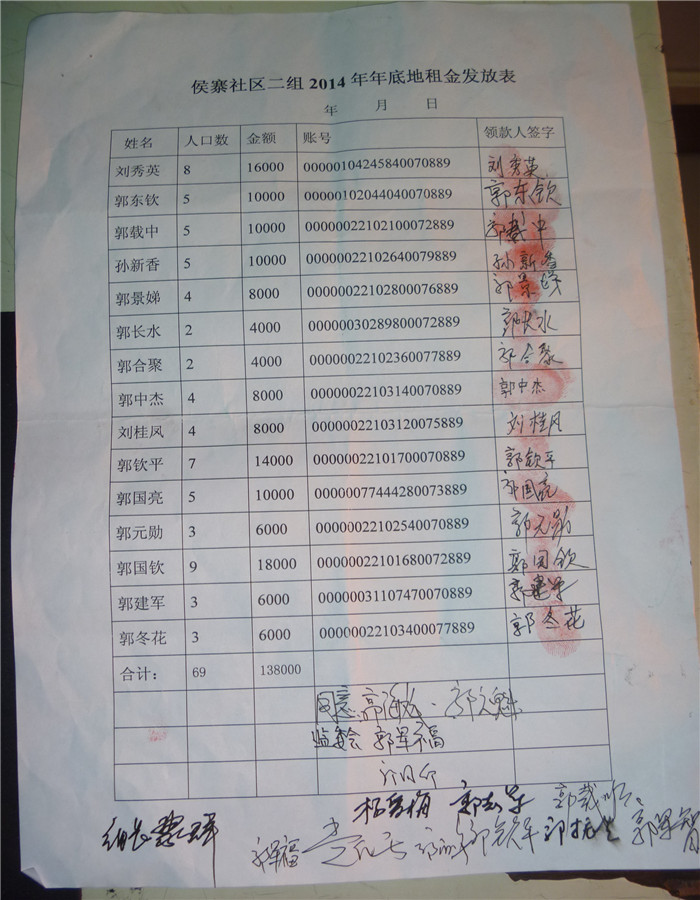 侯寨社区二组 2014 年年底地租金发放表
年 月 日
姓名 人口数 金额 账号 领款人签字
刘秀英 8 16000 00000104245840070889 刘秀英
郭东钦 5 10000 00000102044040070889 郭东钦
郭载中 5 10000 00000022102100072889 郭载中
孙新香 5 10000 00000022102640079889 孙新香
郭景娣 4 8000 00000022102800076889 郭景娣
郭长水 2 4000 00000030289800072889 郭长水
郭合聚 2 4000 00000022102360077889 郭合聚
郭中杰 4 8000 00000022103140070889 郭中杰
刘桂凤 4 8000 00000022103120075889 刘桂凤
郭钦平 7 14000 00000022101700070889 郭钦平
郭国亮 5 10000 00000077444280073889 郭国亮
郭元勋 3 6000 00000022102540070889 郭元勋
郭国钦 9 18000 00000022101680072889 郭国钦
郭建军 3 6000 00000031107470070889 郭建军
郭冬花 3 6000 00000022103400077889 郭冬花
合计: 69 138000
同意
监委会 郭军福
组长